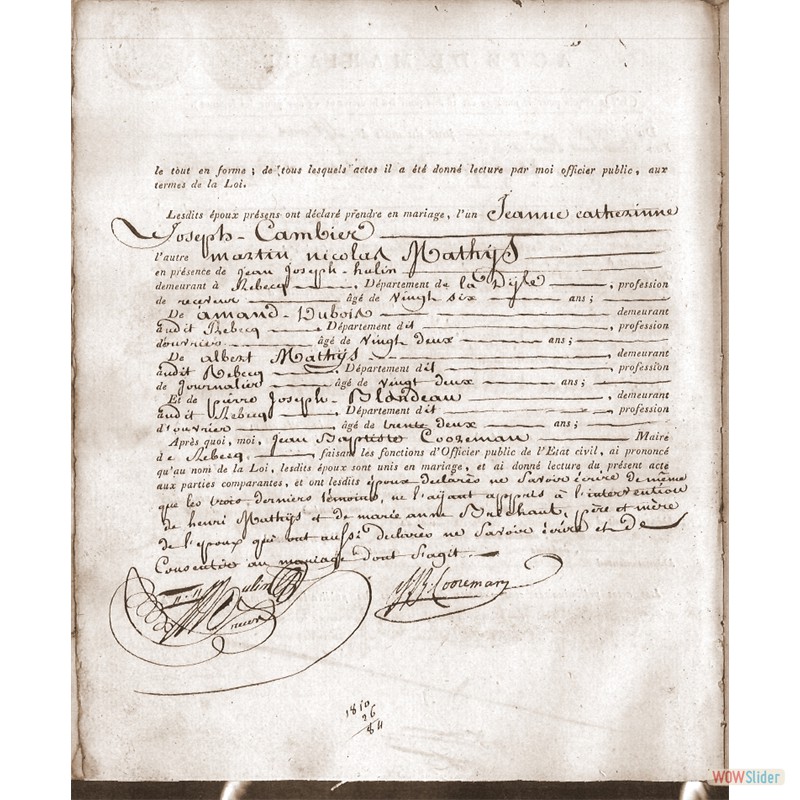 le tout en forme ; de tous lesquels actes il a été donné lecture par moi officier public, aux
termes de la Loi.
Lesdits époux présens ont déclaré prendre en mariage, l'un Jeanne catherinne
Joseph - Cambier
l'autre martin nicolas Mathÿs
en présence de jean joseph - hulin
demeurant à Rebecq , Département de la Dÿle , profession
de receveur âgé de vingt six ans ;
De amand - Dubois demeurant
audit Rebecq , Département dit profession
d'ouvrier âgé de vingt deux ans ;
De albert Mathÿs demeurant
audit Rebecq , Département dit profession
de journalier âgé de vingt deux ans ;
Et de pierre Joseph - Blondeau demeurant
audit Rebecq , Département dit profession
d'ouvrier âgé de trente deux ans ;
Après quoi, moi, Jean Baptiste Cooreman Maire
de Rebecq , faisant les fonctions d'Officier public de l'Etat civil, ai prononcé
qu'au nom de la Loi, lesdits époux sont unis en mariage, et ai donné lecture du présent acte
aux parties comparantes, et ont lesdits époux declarés ne savoir écrire de même
que les trois derniers témoins, ne l'aÿant appris à l'intervention
de henri Mathÿs et de marie anne Brechaut, père et mère
de l'epoux qui ont aussi declarés ne savoir écrire et de
Consentir au mariage dont s'agit.
Hulin JB Cooreman
1810
26
84
WOWSlider